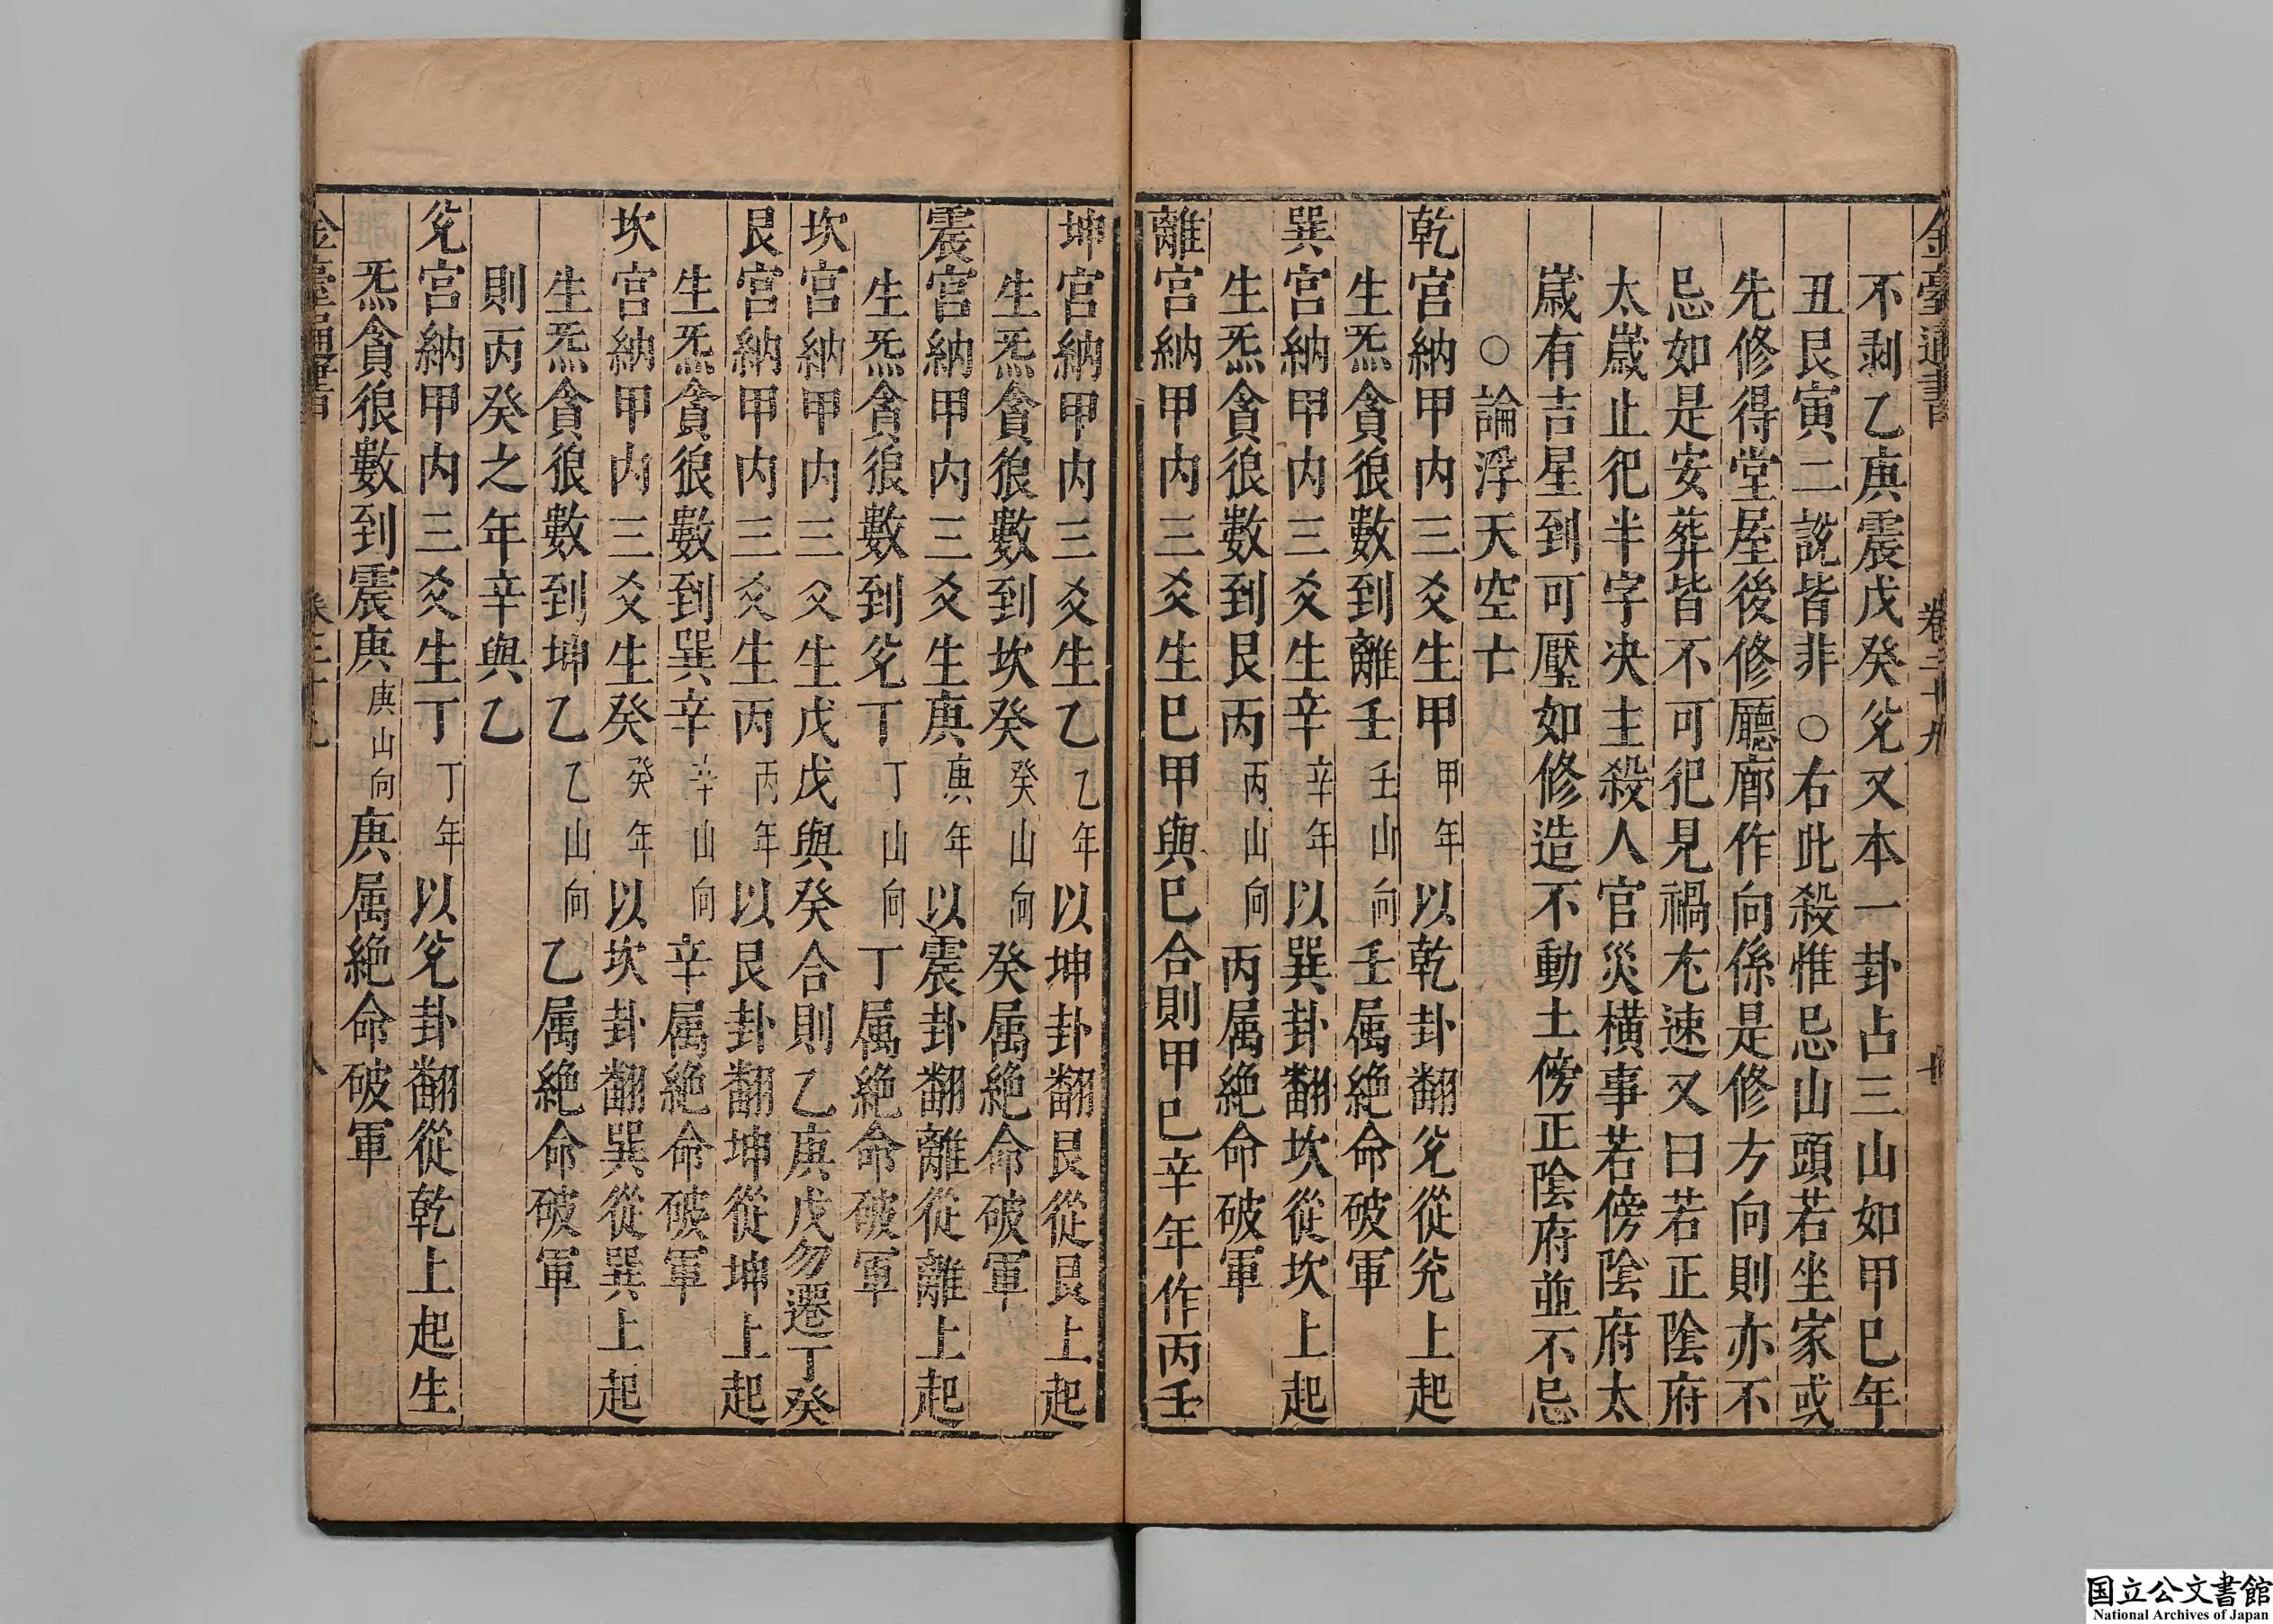 金臺通書　卷三十九
不剥乙庚震戊癸兊又本一卦占三山如甲巳年
丑艮寅二說皆非○右此殺惟忌山頭若坐家或
先修得堂屋後修廳廊作向係是修方向則亦不
忌如是安葬皆不可犯見禍尤速又曰若正陰府
太歲止犯半字决主殺人官災橫事若傍陰府太
歲有吉星到可壓如修造不動土傍正陰府並不忌
○論浮天空亡
乾宮納甲内三爻生甲甲年以乾卦翻兊從兊上起
生炁貪狼數到離壬壬山向壬属絶命破軍
巽宮納甲内三爻生辛辛年以巽卦翻坎從坎上起
生炁貪狼數到艮丙丙山向丙属絶命破軍
離宮納甲内三爻生巳甲與巳合則甲巳辛年作丙壬
坤宮納甲内三爻生乙乙年以坤卦翻艮從艮上起
生炁貪狼數到坎癸癸山向癸属絶命破軍
震宮納甲内三爻生庚庚年以震卦翻離從離上起
生炁貪狼數到兊丁丁山向丁属絶命破軍
坎宮納甲内三爻生戊戊與癸合則乙庚戊勿遷丁癸
艮宮納甲内三爻生丙丙年以艮卦翻坤從坤上起
生炁貪狼數到巽辛辛山向辛属絶命破軍
坎宮納甲内三爻生癸癸年以坎卦翻巽從巽上起
生炁貪狼數到坤乙乙山向乙属絶命破軍
則丙癸之年辛與乙
兊宮納甲内三爻生丁丁年以兊卦翻從乾上起生
炁貪狼數到震庚庚山向庚属絶命破軍
国立公文書館
National Archives of Japan